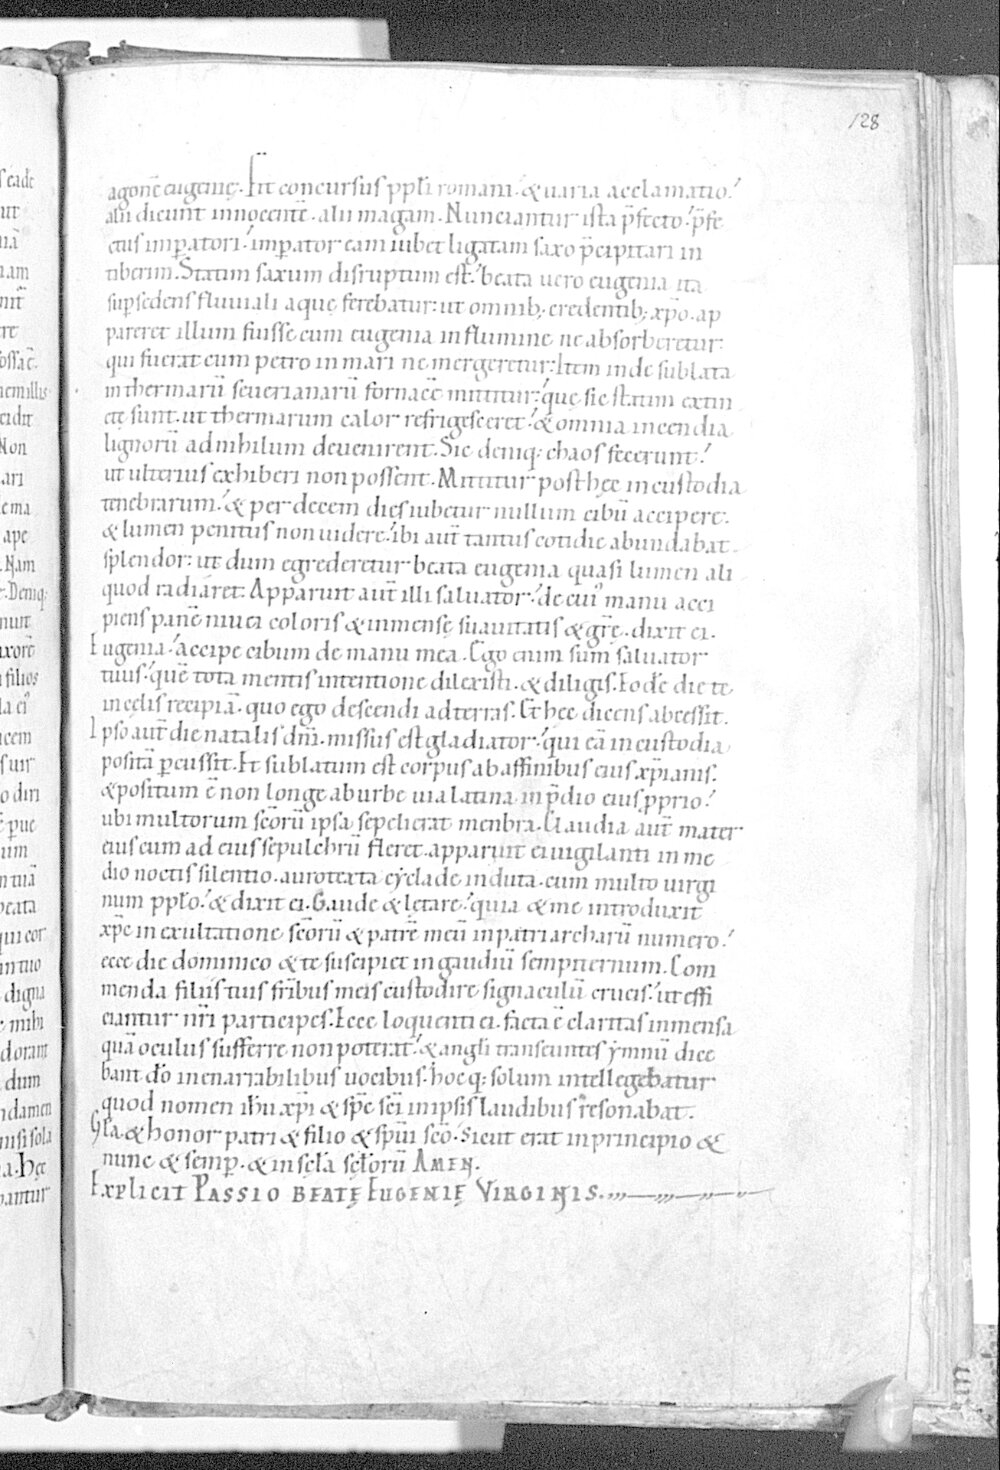 128
agonē eugenię. Fit concursus pp̄li romani. & uaria acclamatio.
alii dicunt innocentē. alii magam. Nunciantur ista p̄fecto. p̄fe
ctus imp̄atori. imp̄ator eam iubet ligatam saxo p̄cipitari in
tiberim. Statim saxum disruptum est. beata uero eugenia ita
sup̄sedens fluuiali aquę ferebatur: ut omnib; credentib; xp̄o. ap
pareret illum fuisse cum eugenia in flumine ne absorberetur.
qui fuerat cum petro in mari ne mergeretur: Item inde sublata
in thermarū seuerianarū fornacē mittitur: quę sic statim extin
ctę sunt. ut thermarum calor refrigesceret. & omnia incendia
lignorū ad nihilum deuenirent. Sic deniq; chaos fecerunt.
ut ulterius exhiberi non possent. Mittitur post hęc in custodia
tenebrarum. & per decem dies iubetur nullum cibū accipere.
& lumen penitus non uidere. ibi aut̄ tantus cotidie abundabat
splendor: ut dum egrederetur beata eugenia quasi lumen ali
quod radiaret: Apparuit aut̄ illi saluator. de cui' manu acci
piens panē niuei coloris & inmensę suauitatis & gr̄ę. dixit ei.
Eugenia. accipe cibum de manu mea. Ego enim sum saluator
tuus. quē tota mentis intentione dilexisti. & diligis. Eodē die te
in cęlis recipiā. quo ego descendi ad terras. Et hęc dicens abcessit.
Ipso aut̄ die natalis dn̄i. missus est gladiator. qui eā in custodia
positā p̄cussit. Et sublatum est corpus ab affinibus eius xp̄ianis.
& positum ē non longe ab urbe uia latina. in p̄dio eius p̄prio.
ubi multorum sc̄orū ipsa sepelierat menbra. Claudia aut̄ mater
eius cum ad eius sepulchrū fleret. apparuit ei uigilanti in me
dio noctis silentio. aurotexta cẏclade induta. cum multo uirgi
num pp̄lo. & dixit ei. Gaude & lętare. quia & me introduxit
xp̄c in exultatione sc̄orū & patrē meū in patriarcharū numero.
ecce die dominico & te suscipiet in gaudiū sempiternum. Com
menda filiis tuis fr̄ibus meis custodire signaculū crucis. ut effi
ciantur nr̄i participes. Ecce loquenti ei. facta ē claritas inmensa
quā oculus sufferre non poterat. & angl̄i transeuntes ẏmnū dice
bant dō inenarrabilibus uocibus. hoc q; solum intellegebatur
quod nomen ih̄u xp̄i & sp̄c sc̄i in ipsis laudibus resonabat.
Gl̄a. & honor patri & filio & sp̄ui sc̄o. Sicut erat in principio &
nunc & semp̄. & in sęl̄a sęl̄orū AMEN.
EXPLICIT PASSIO BEATĘ EUGENIĘ VIRGINIS.